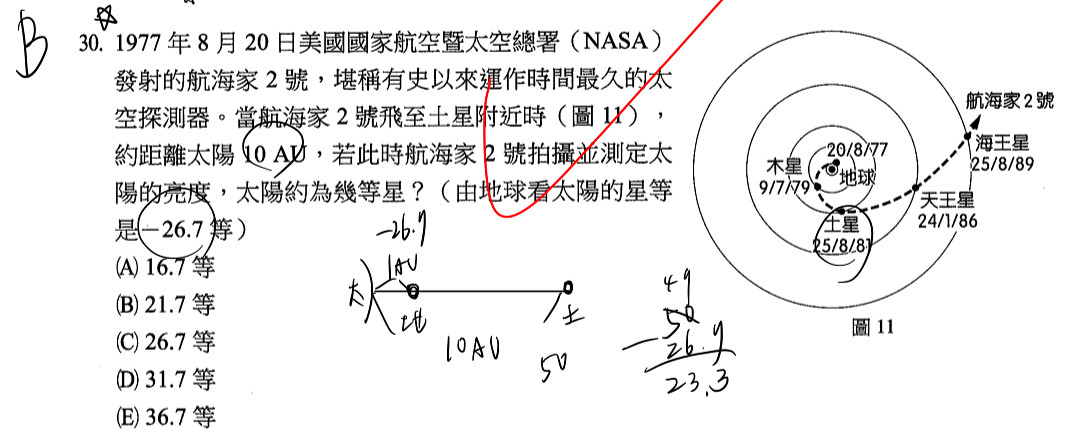 B
30. 1977 年 8 月 20 日美國國家航空暨太空總署（NASA）
發射的航海家 2 號，堪稱有史以來運作時間最久的太
空探測器。當航海家 2 號飛至土星附近時（圖 11），
約距離太陽 10 AU，若此時航海家 2 號拍攝並測定太
陽的亮度，太陽約為幾等星？（由地球看太陽的星等
是－26.7 等）
(A) 16.7 等
(B) 21.7 等
(C) 26.7 等
(D) 31.7 等
(E) 36.7 等
-26.7
1AU
太
地
土
10AU
50
49
50
26.7
23.3
航海家 2 號
海王星
25/8/89
20/8/77
地球
木星
9/7/79
天王星
24/1/86
土星
25/8/81
圖 11